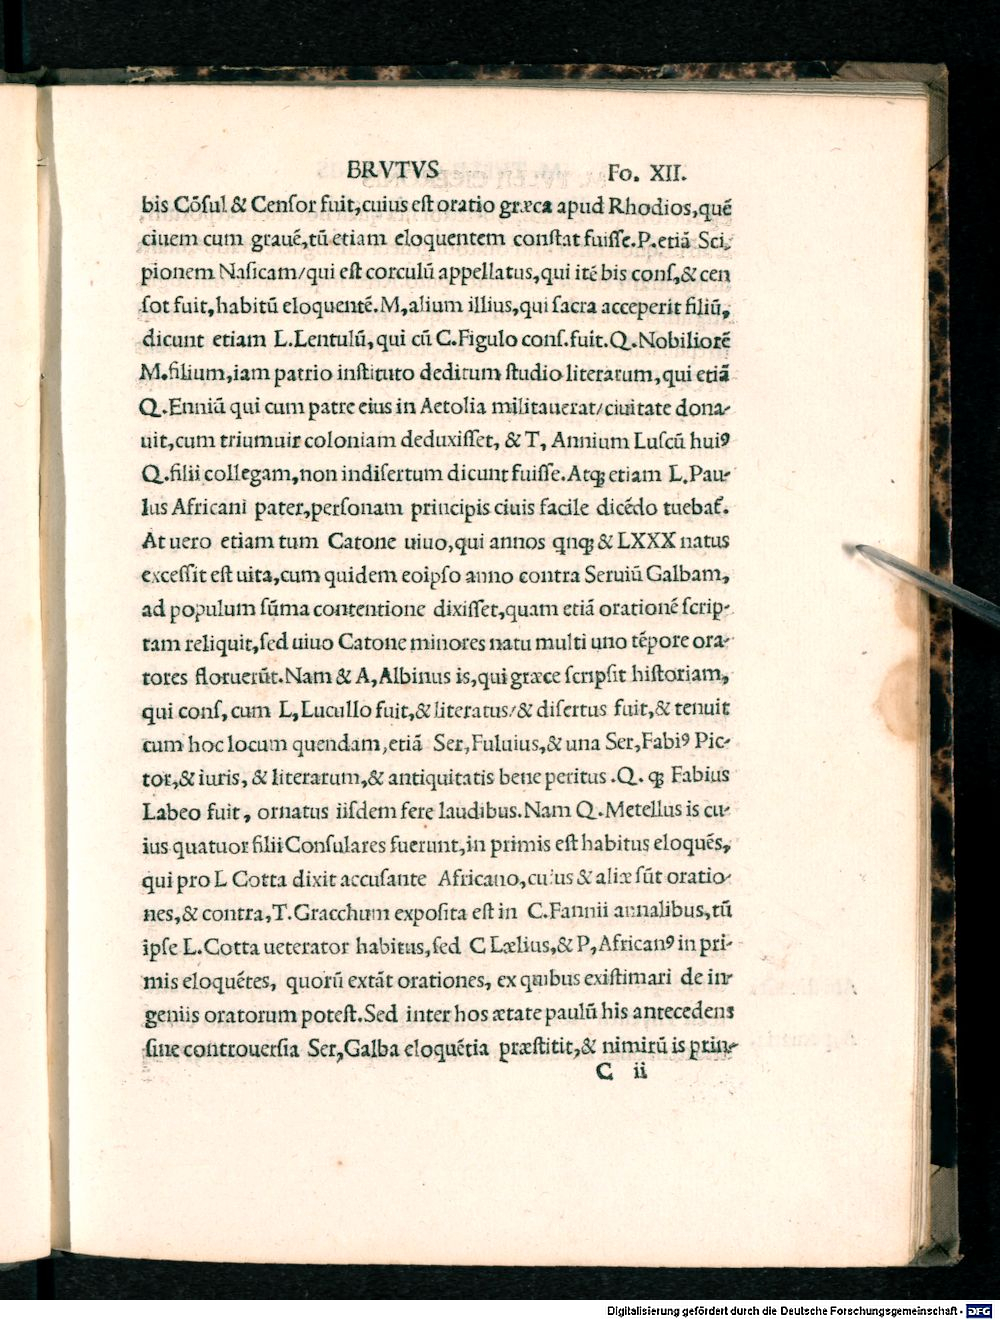 BRVTVS Fo. XII.
bis Cõſul & Cenſor fuit,cuius eſt oratio græca apud Rhodios,quẽ
ciuem cum grauẽ,tũ etiam eloquentem conſtat fuiſſe.P.etiã Sci,
pionem Naſicam/qui eſt corculũ appellatus,qui itẽ bis conſ,& cen
ſot fuit,habitũ eloquentẽ.M,alium illius,qui ſacra acceperit filiũ,
dicunt etiam L.Lentulũ,qui cũ C.Figulo conſ.fuit.Q.Nobiliorẽ
M.filium,iam patrio inſtituto deditum ſtudio literarum,qui etiã
Q.Enniã qui cum patre eius in Aetolia militauerat/ciuitate dona-
uit,cum triumuir coloniam deduxiſſet, & T, Annium Luſcũ huiꝰ
Q.filii collegam,non indiſertum dicunt fuiſſe.Atqꝫ etiam L.Pau-
lus Africani pater,perſonam principis ciuis facile dicẽdo tuebat᷑.
At uero etiam tum Catone uiuo,qui annos qnqꝫ & LXXX natus
exceſſit eſt uita,cum quidem eoipſo anno contra Seruiũ Galbam,
ad populum ſũma contentione dixiſſet,quam etiã orationẽ ſcrip-
tam reliquit,ſed uiuo Catone minores natu multi uno tẽpore ora-
tores floruerũt.Nam & A,Albinus is,qui græce ſcripſit hiſtoriam,
qui conſ, cum L, Lucullo fuit,& literatus/& diſertus fuit,& tenuit
cum hoc locum quendam,etiã Ser,Fuluius,& una Ser,Fabiꝰ Pic-
tor,& iuris, & literarum,& antiquitatis bene peritus .Q. qꝫ Fabius
Labeo fuit, ornatus iiſdem fere laudibus.Nam Q.Metellus is cu-
ius quatuor filii Conſulares fuerunt,in primis eſt habitus eloquẽs,
qui pro L Cotta dixit accuſante Africano,cuius & aliæ ſũt oratio-
nes,& contra,T.Gracchum expoſita eſt in C.Fannii annalibus,tũ
ipſe L.Cotta ueterator habitus,ſed C Lælius,& P,Africanꝰ in pri-
mis eloquẽtes, quorũ extãt orationes, ex quibus exiſtimari de in-
geniis oratorum poteſt.Sed inter hos ætate paulũ his antecedens
ſine controuerſia Ser,Galba eloquẽtia præſtitit,& nimirũ is prin-
C ii
Digitalisierung gefördert durch die Deutsche Forschungsgemeinschaft - DFG